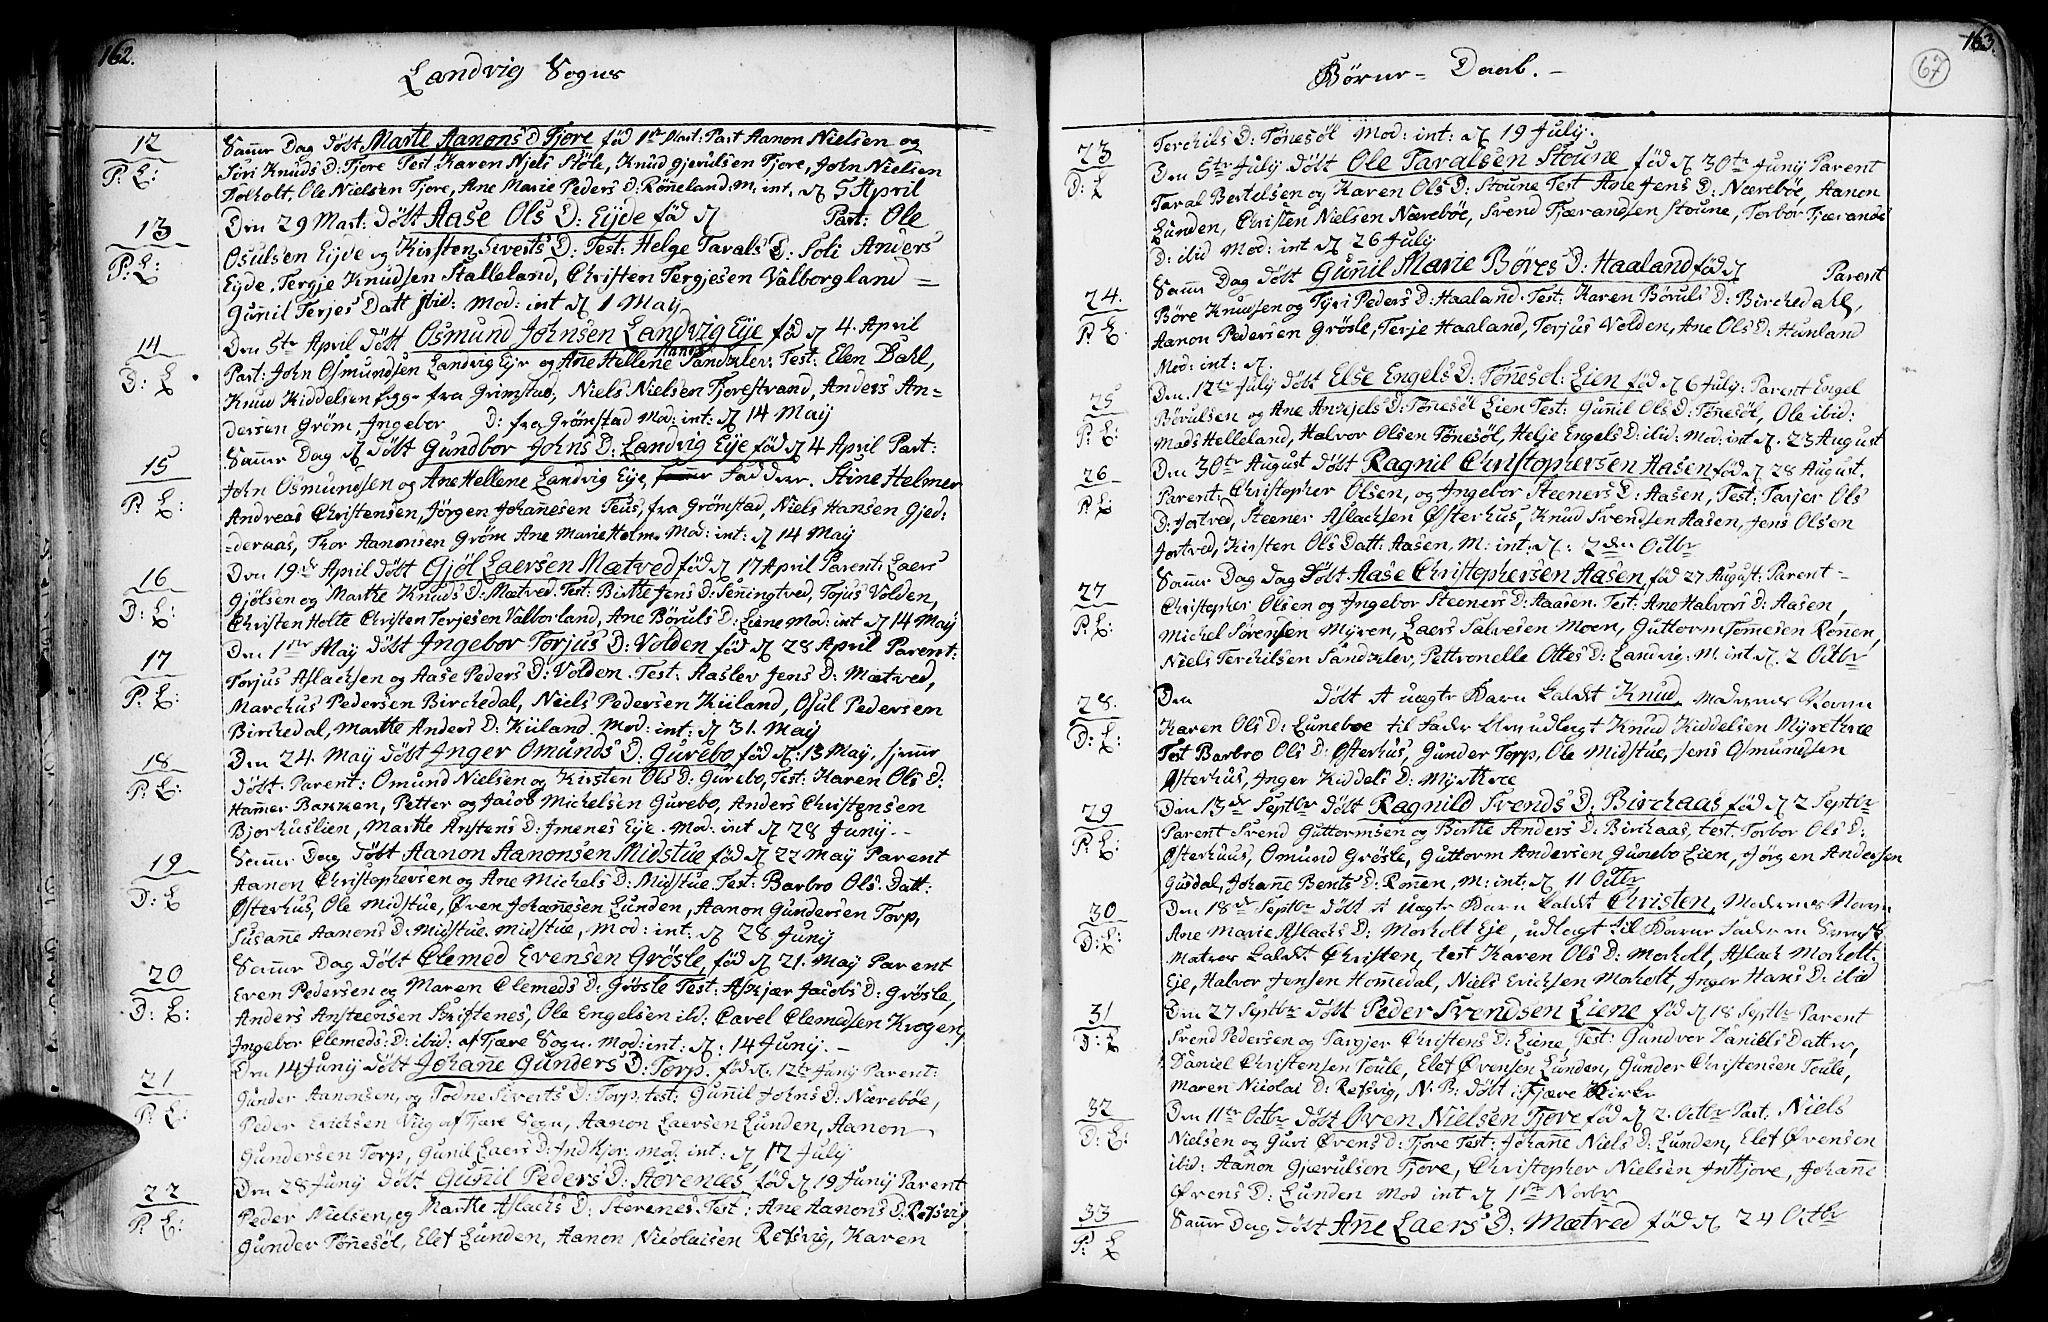 162.
Landvig Sogns
12 Samme Dag døbt Marte Aanons D Fjore fød 1ste Mart: Part Aanon Nielsen og
P: L: Siri Knuds D: Fjore Test Karen Niels Støle, Knud Gjerulsen Fjore, John Nielsen
Folholt, Ole Nielsen Fjore, Ane Marie Peders D: Røneland M: int: d 5 April
13 Den 29 Mart: døbt Aase Ols D: Eyde fød d Part: Ole
P: L: Osulsen Eyde og Kirsten Siverts D: Test: Helge Tarals D: Soli Anders
Eyde, Tergje Knudsen Stalleland, Christen Tergjesen Valborgland =
Gunil Terjes Datt ibid: Mod: int d 1 May
14 Den 5te April døbt Osmund Johnsen Landvig Eye fød d 4. April
D: L Part: John Osmundsen Landvig Eje og Ane Hellene Hans Sandklev. Test: Elen Dahl,
Knud Kiddelsen begge fra Grimstad, Niels Nielsen Fjorestrand, Anders An=
dersen Grøm, Ingebor D: fra Grømstad Mod: int: d 14 May
15 Samme Dag d døbt Gundbor Johns D: Landvig Eye fød d 4 April Part:
P: L: John Osmundsen og Ane Hellene Landvig Eye, Faddere. Stine Helmer
Andreas Christensen, Jørgen Johanesen Teus, fra Grømstad, Niels Hansen Gjed:
=dernas, Thor Aanonsen Grøm Ane Marie Holm. Mod: int: d 14 May
16 Den 19de April døbt Gjøl Laersen Mætved fød d 17 April Parent: Laers
D: L: Gjølsen og Marthe Knuds D: Mætved. Test: Birthe Jens D: Søningtved, Tojus Volden,
Christen Holte Christen Terjesen Valborland, Ane Børuls D: Liene Mod: int d 14 May
17 Den 1ste May døbt Ingebor Torjus D: Volden fød d 28 April Parent:
P: L: Torjus Aslachsen og Aase Peders D: Volden. Test: Aaslev Jens D: Mætved,
Marchus Pedersen Birchedal, Niels Pedersen Kiiland, Osul Pedersen
Birchedal, Marthe Anders D: Kiiland. Mod: int: d 31. May
18 Den 24. May døbt Inger Omunds D: Gurebo, fød d. 13 May, hjemme
P: L: døbt. Parent: Omund Nielsen og Kirsten Ols D: Gurebo, Test: Karen Ols D:
Hammer Bakken, Petter og Jacob Michelsen Gurebo, Anders Christensen
Bjorhuslien, Marthe Anstens D: Imenes Eye. Mod: int d 28 Juny.-
19 Samme Dag døbt Aanon Aanonsen Midstue fød d 22 May Parent
D: L Aanon Christophersen og Ane Michels D: Midstue Test: Barbro Ols. Datt:
Østerhus, Ole Midstue, Øven Johanesen Lunden, Aanon Gundersen Torp,
Susane Aanons D: Midstue. midstue, Mod: int: d 28 Juny
20 Samme Dag døbt Clemed Evensen Grøsle, fød d 21. May Parent
D: L: Even Pedersen og Maren Clemeds D: Grøsle Test: Askjær Jacobs D: Grøsle,
Anders Ansteensen Briftenes, Ole Engelsen ibid: Cavel Clemedsen Krogen,
Ingebor Clemeds: D: ibid: af Fjære Sogn. Mod: int: d. 14 Juny.-
21 Den 14 Juny døbt Johane Gunders D: Torp. fød d. 12te Juny Parent:
P: L: Gunder Aanonsen, og Todne Siverts D: Torp, test: Gunil Johns D: Nærebøe,
Peder Erichsen Viig af Fjære Sogn, Aanon Laersen Lunden, Aanon
Gundersen Torp, Gunil Laers D: Indkjor. Mod: int: d 12 July
22 Den 28 Juny døbt Gunil Peders D: Storenes, fød d 19 Juny Parent
P: L: Peder Nielsen, og Marthe Aslachs D: Sterenes. Test: Ane Aanons D: Refsvig
Gunder Tønesøl, Elef Lunden, Aanon Nicolaisen Refsvig, Karen
163.
67
Børne- Daab.-
Terchils D: Tønesøl Mod: int: d 19 July.
23 Den 5te July døbt Ole Taralsen Stoune fød d 30te Juny Parent
D: L Taral Bertelsen og Karen Ols D: Stoune Test Ane Jens D: Nærebøe, Aanon
Lunden, Christen Nielsen Nærebøe, Svend Tjærandsen Stoune, Torbor Tjærands
D: ibid Mod: int d 26 July
24. Samme Dag døbt Gunil Marie Børes D: Haaland fød d Parent
P: L. Børe Knudsen og Tyri Peders D: Haaland. Test: Karen Børuls D: Birchedahl,
Aanon Pedersen Grøsle, Terje Haaland, Torjus Volden, Ane Ols D: Hunland
Mod: int: d.
25 Den. 12te July døbt Else Engels D: Tønesøl: Lien fød d 6 July: Parent Engel
P: L: Børulsen og Ane Ankjels D: Tønesøl Lien Test: Gunil Ols D: Tonesøl, Ole ibid:
Mads Helleland, Halvor Olsen Tønesøl, Helje Engels D: ibid: Mod: int d. 23 August
26 Den 30te August døbt Ragnil Christophersen Aasen fød d 28 August.
P: L: Parent: Christopher Olsen, og Ingebor Steeners D: Aasen, Test: Tarjer Ols
D: Jortved, Steener Aslachsen Østerhus, Knud Svendsen Aasen, Jens Olsen
Jortved, Kirsten Ols Datt: Aasen, M: int: d.: 2den Octbr
27 Samme Dag Dag døbt Aase Christophersen Aasen, fød 27 August: Parent-
P: L: Christopher Olsen og Ingebor Steeners D: Aaasen. Test: Ane Halvors D: Aasen,
Michel Sørensen Myren, Laers Salvesen Moen, Guttorm Tømesen Rønen,
Niels Terchilsen Sandklev, Pettronelle Ottes D: Landvig. M. int d. 2 Octbr
28. Den døbt et uægte Barn kaldt Knud, moderens Navn
D: L: Karen Ols D: Luneboe til fader blev udlagt Knud Kiddelsen Myrethræ
Test Barbro Ols D: Østerhus, Gunder Torp, Ole Midstue, Jens Osmundsen
Østerhus, Inger Kiddels D: Myrthræ
29 Den 13de Septbr døbt Ragnild Svends D: Birchaas fød d 2 Septbr
P: L: Parent Svend Guttormsen og Birthe Anders D: Birchaas, test: Torbor Ols D:
Østerhuus, Omund Grøsle, Guttorm Andersen Gunebo Lien, Jørgen Andersen
Gusdal, Johane Bents D: Rønen, M: int: d 11 Octbr
30 Den 18de Septbr døbt et Uægte Barn kaldt Christen, Moderens Navn
D: L: Ane Marie Aslachs D: Morholt Eje, udlagt til Barne Fader en
Matros kaldt Christen, test Karen Ols D: Morholt, Aslach Morholt.
Eje, Halvor Jensen Homedal, Niels Erichsen Morholt, Inger Hans D: ibid
31 Den 27 Septbr døbt Peder Svendsen Liene fød d 18 Septbr Parent
D: L Svend Pedersen og Targjer Christens D: Liene Test: Gundvor Daniels Datter,
Daniel Christensen Toule, Elef Øvensen Lunden, Gunder Christensen Toule,
Maren Nicolai D: Refsvig, N. B: døbt i Fjære Kirke
32 Den 11te Octbr døbt Øven Nielsen Fjore fød d 2. Octbr Part. Niels
D: L: Nielsen og Guri Øvens D: Fjore Test: Johane Niels D: Lunden, Elef Øvensen
ibid: Aanon Gjærulsen Fjore, Christopher Nielsen Intfjore, Johane
Øvens D: Lunden Mod int d 1ste Novbr
33 Samme Dag døbt Ane Laers D: Mætved fød d. 24 Octbr
P: L